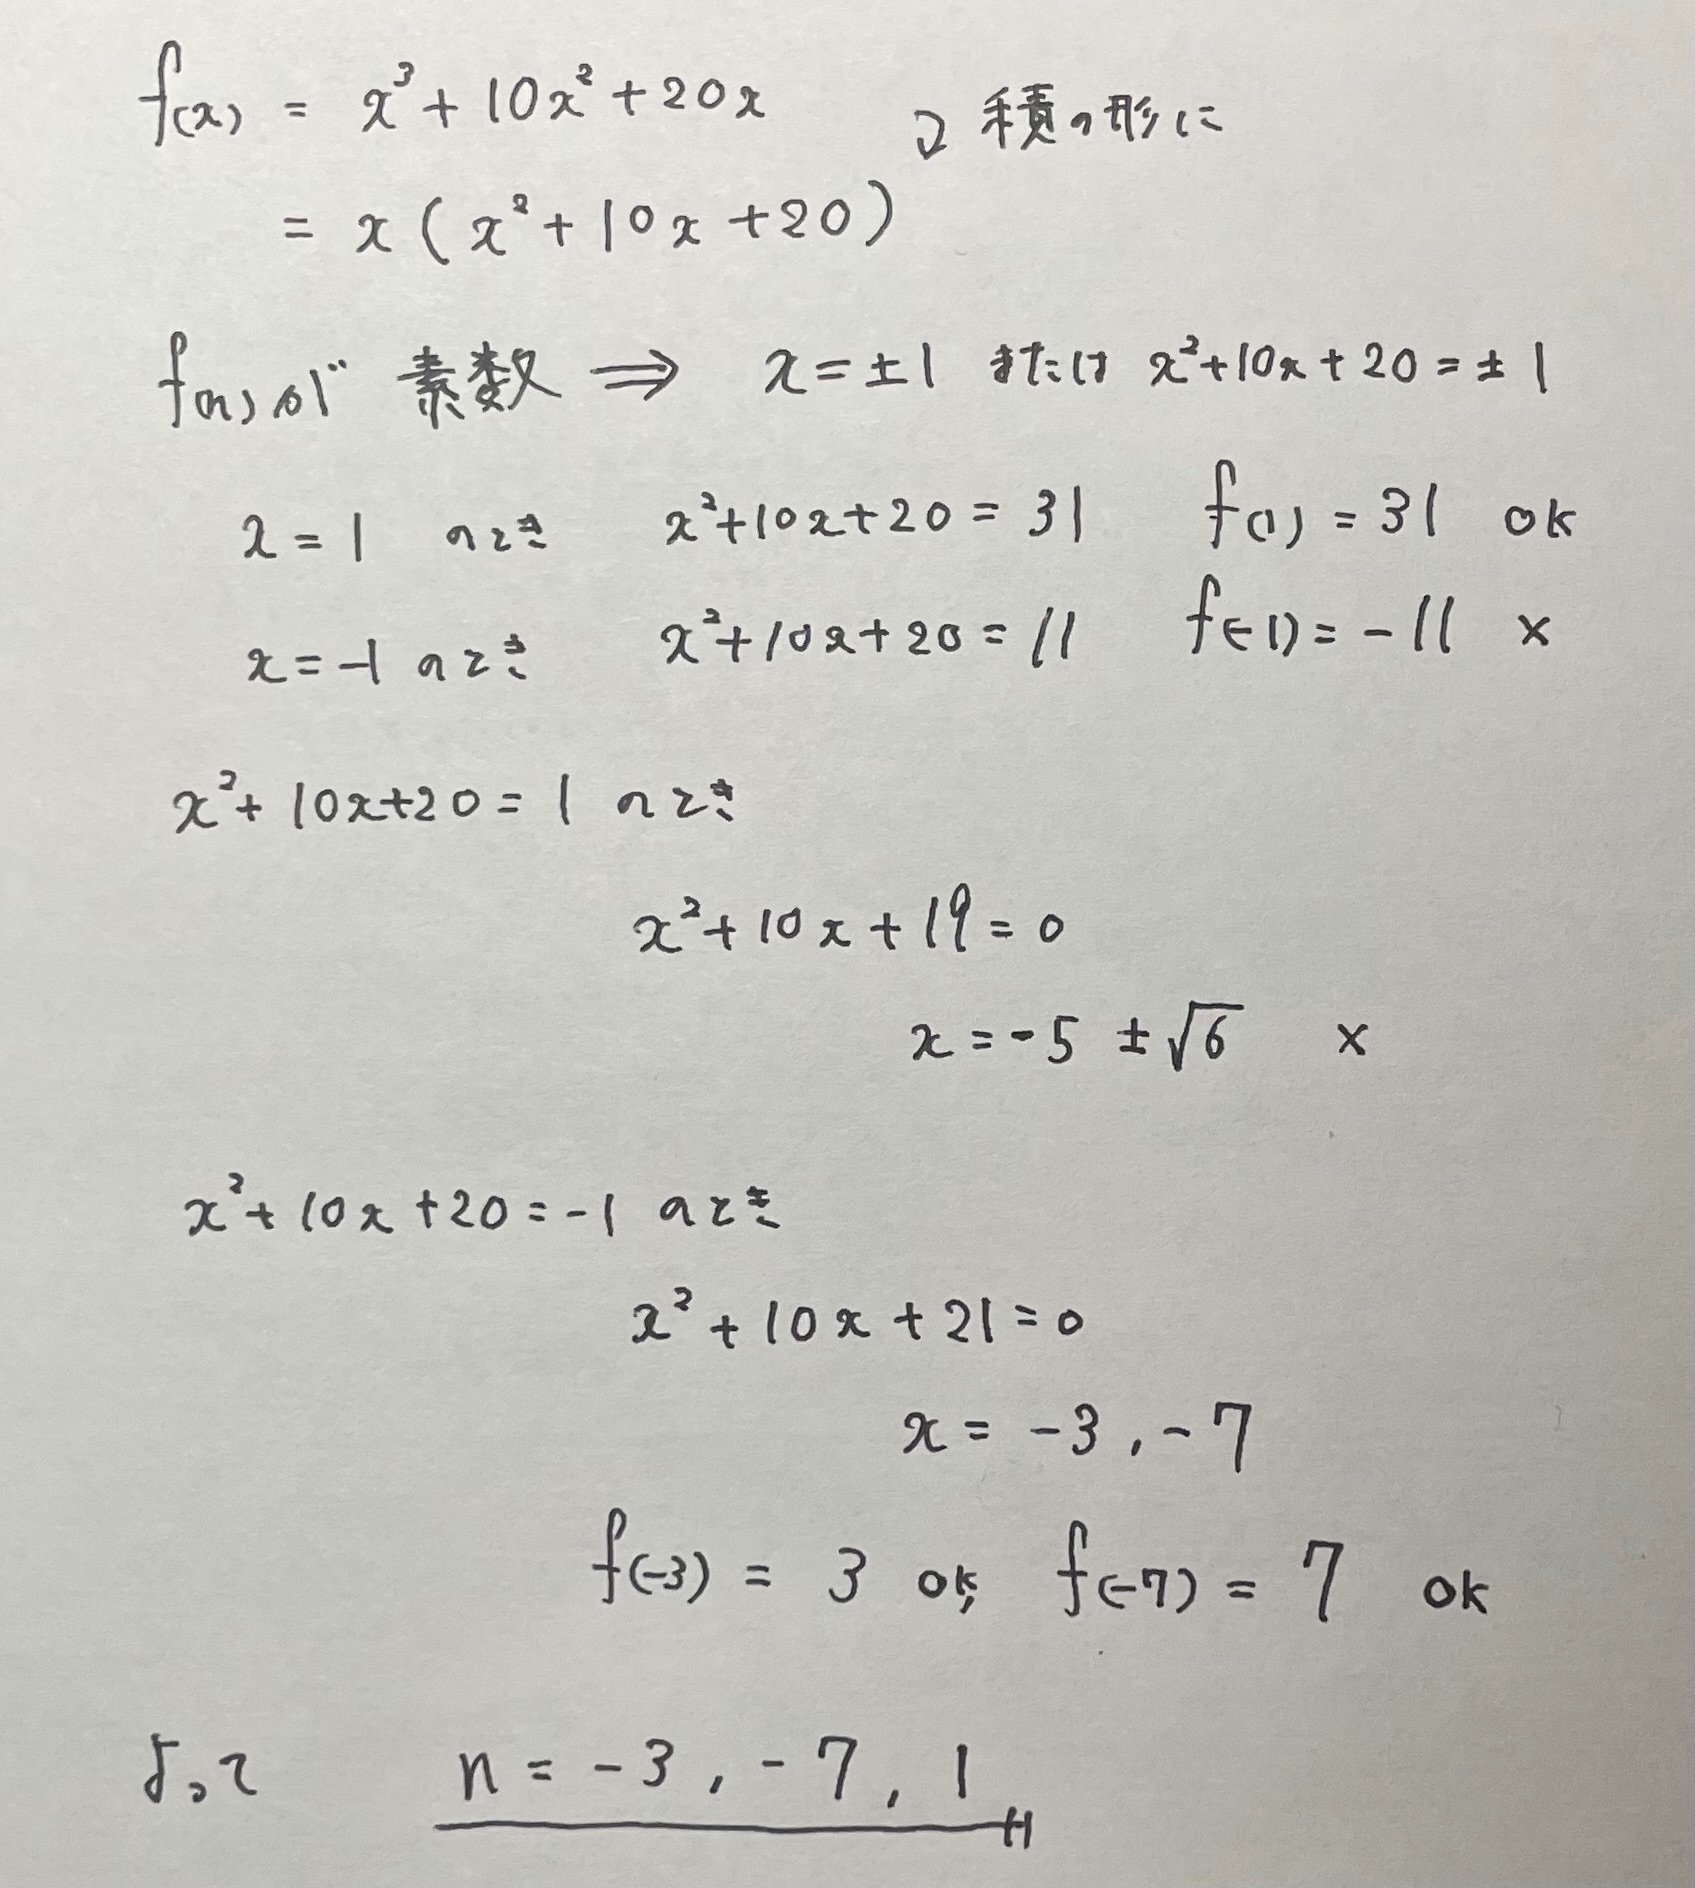 f(x) = x³ + 10x² + 20x
↓ 積の形に
= x ( x² + 10x + 20 )
f(n)が 素数 ⇒ x = ±1 または x² + 10x + 20 = ±1
x = 1 のとき x² + 10x + 20 = 31 f(1) = 31 ok
x = -1 のとき x² + 10x + 20 = 11 f(-1) = -11 ×
x² + 10x + 20 = 1 のとき
x² + 10x + 19 = 0
x = -5 ± √6 ×
x² + 10x + 20 = -1 のとき
x² + 10x + 21 = 0
x = -3 , -7
f(-3) = 3 ok, f(-7) = 7 ok
よって n = -3 , -7 , 1